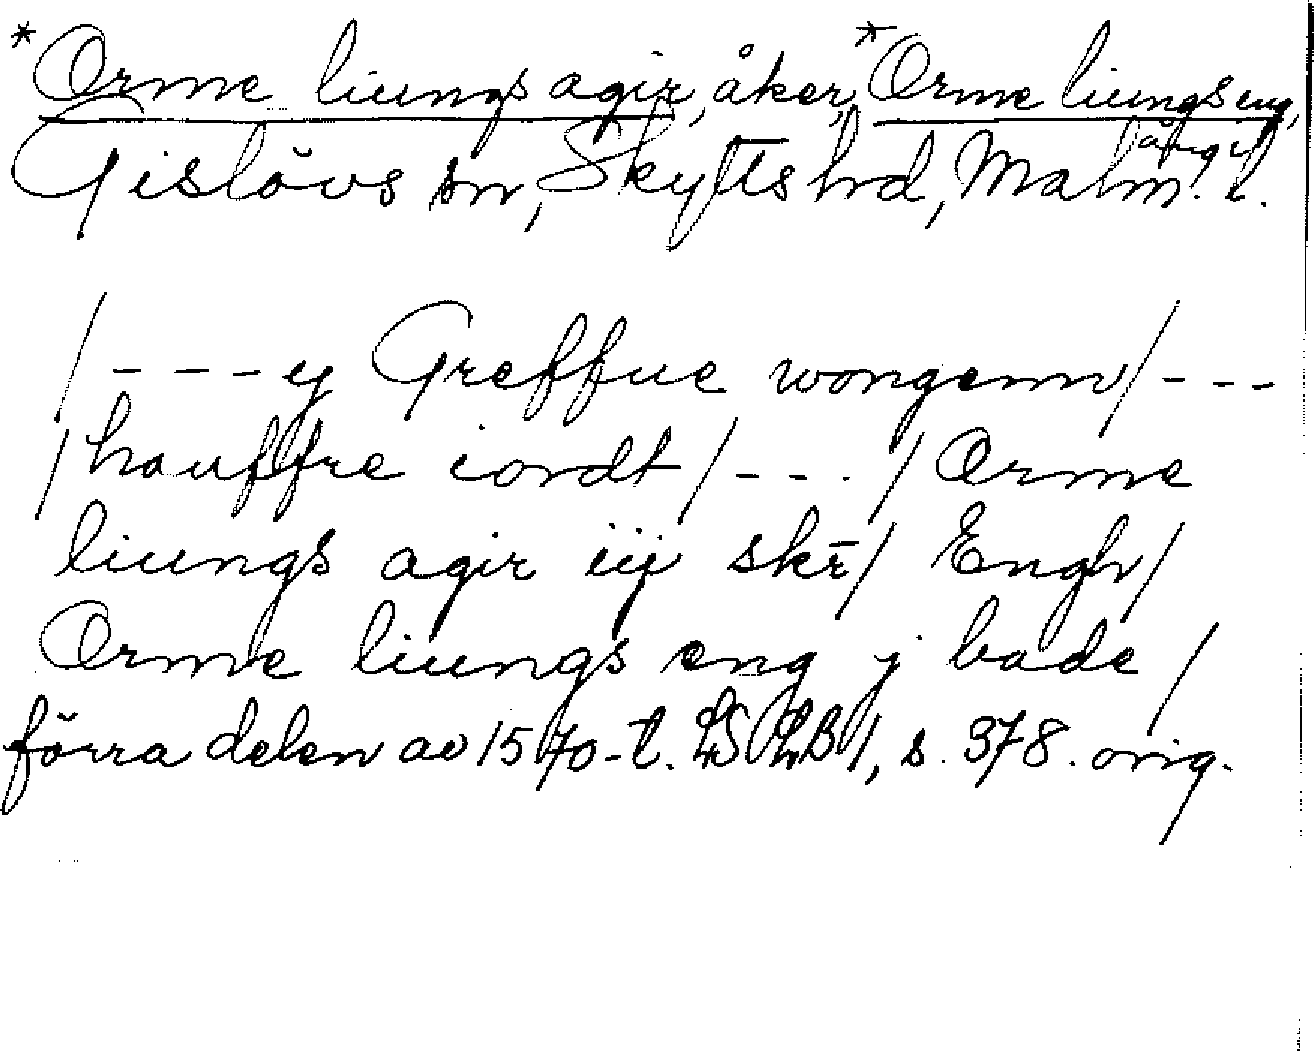 *Orme liungs agir, åker, *Orme liungs eng,
äng
Gislövs sn, Skytts hd, Malm. l.
/ - - - y Greffue wongenn / - - -
/ hauffre iordt / - - . / Orme
liungs agir iij skr̄ / Engh /
Orme liungs eng j bade /
förra delen av 1570-t. LSLB 1, s. 378. orig.